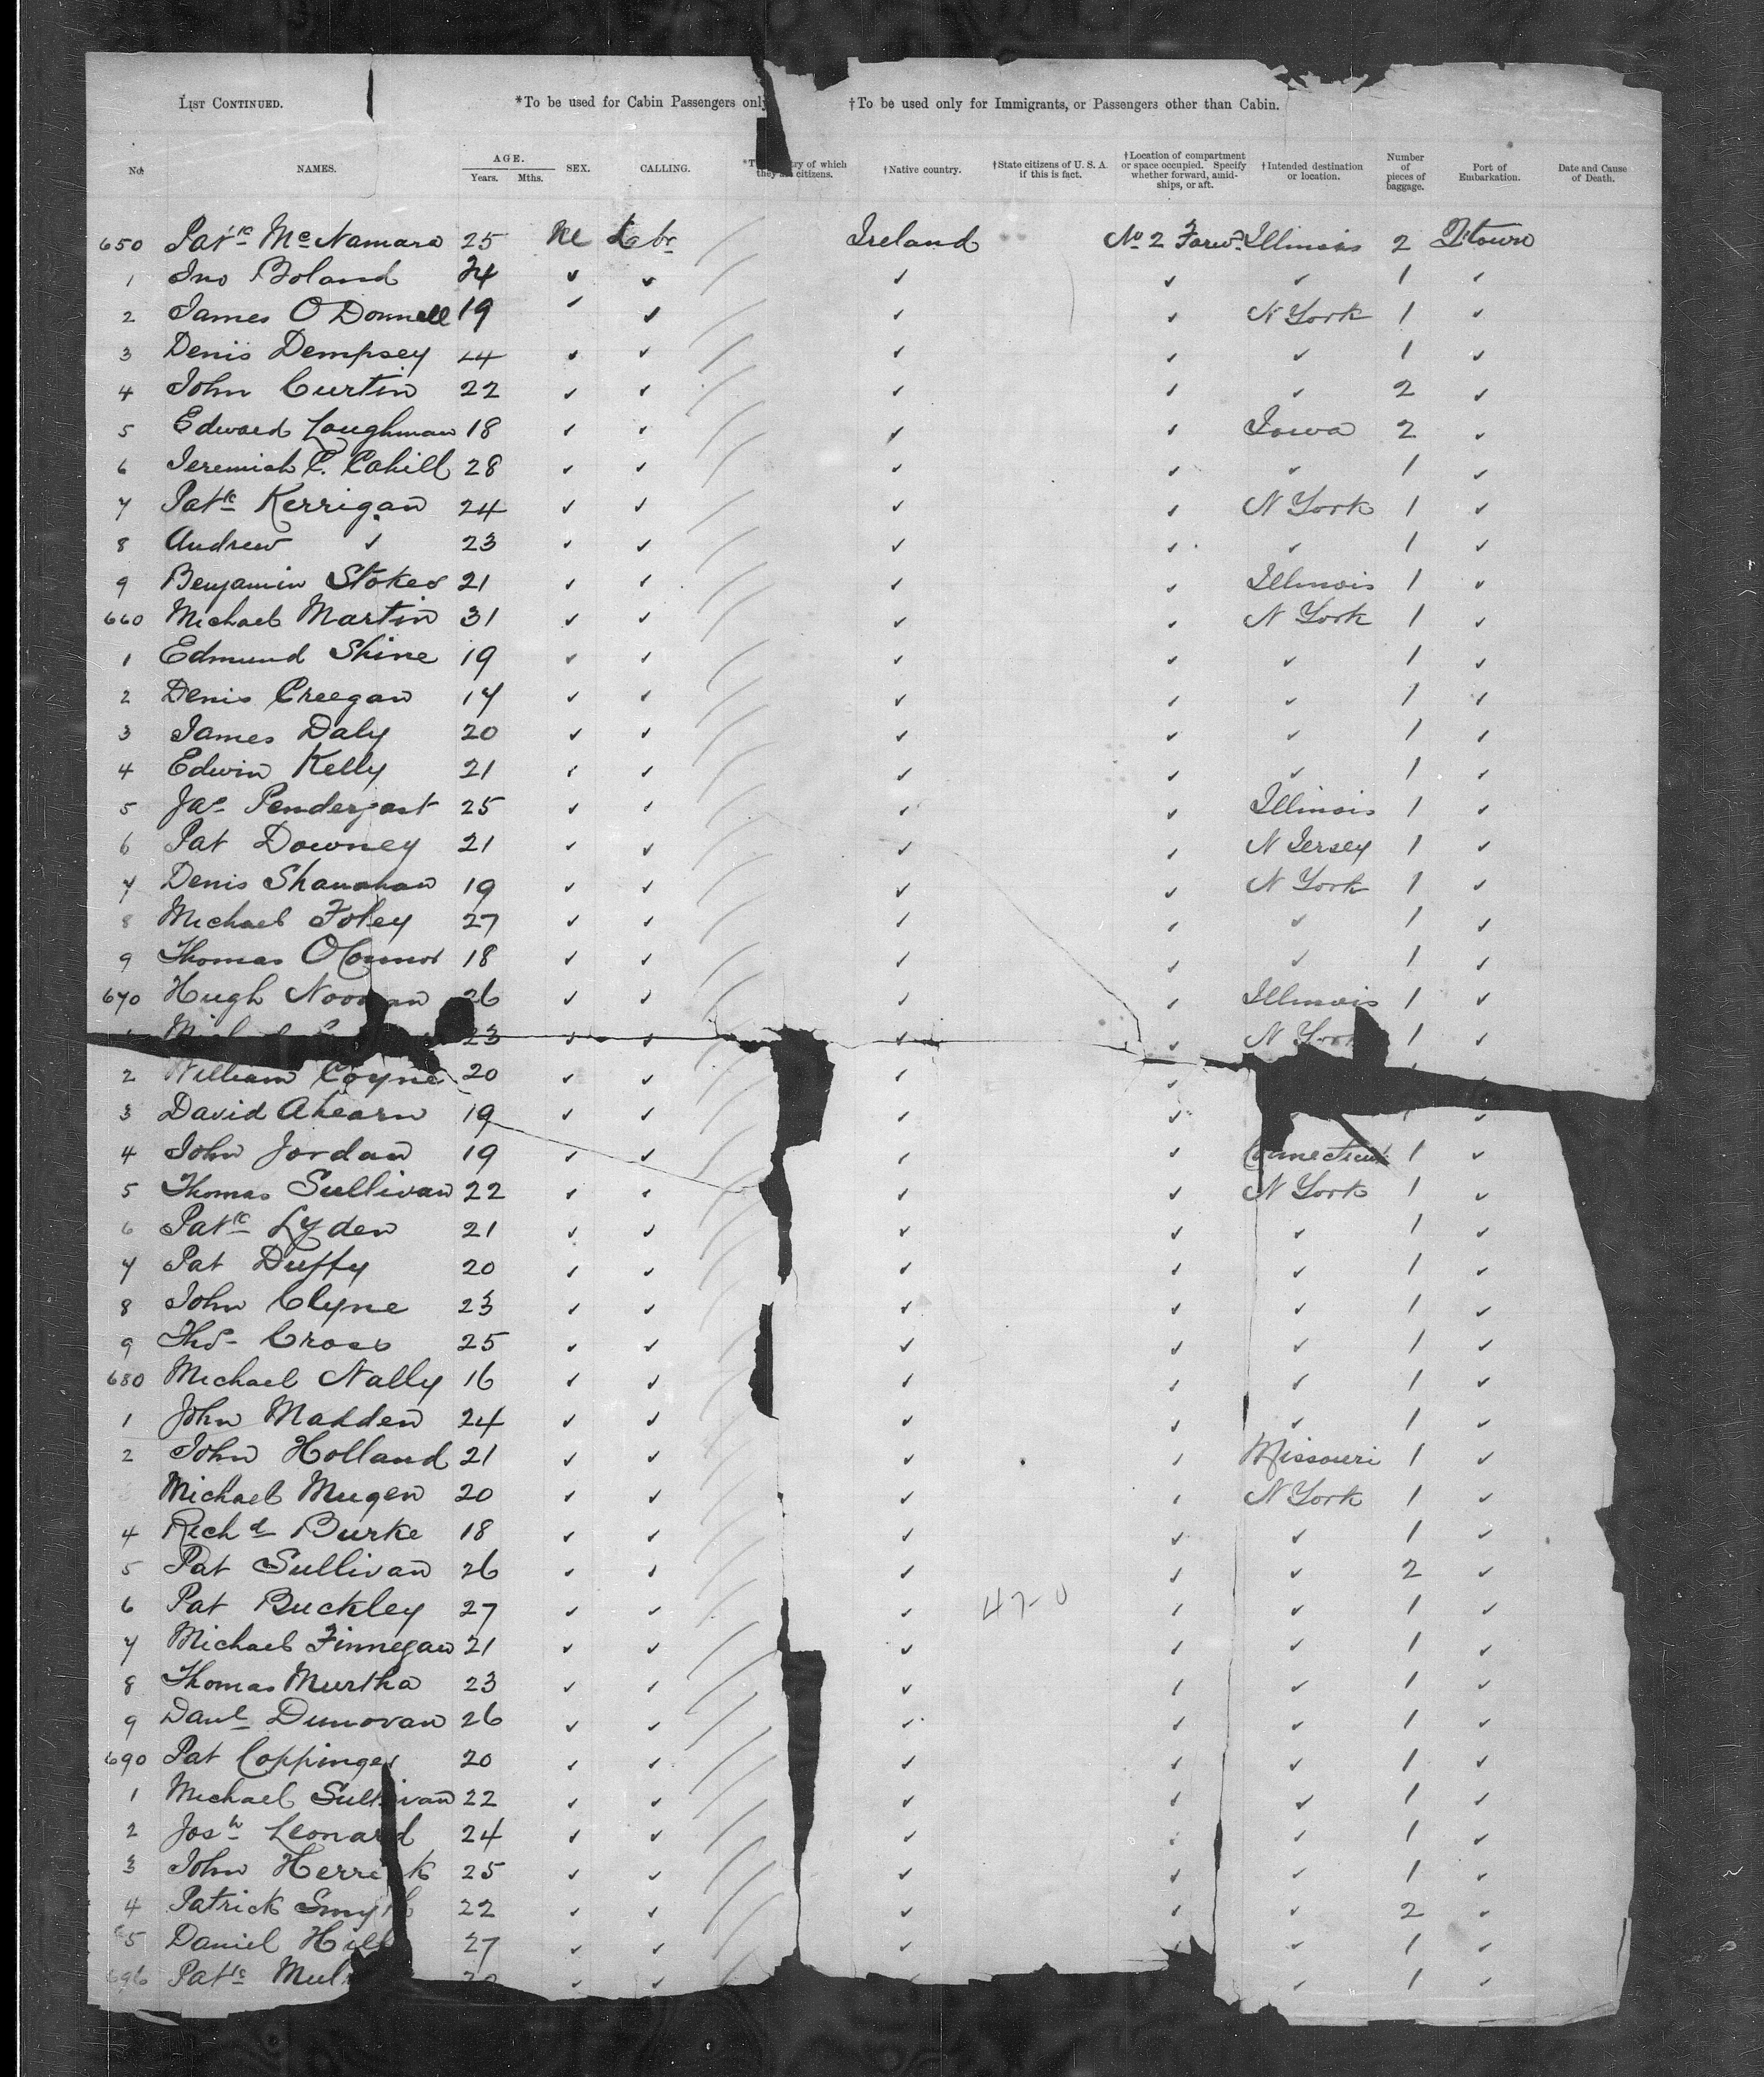 LIST CONTINUED. *To be used for Cabin Passengers only †To be used only for Immigrants, or Passengers other than Cabin.
No. NAMES. AGE. Years. Mths. SEX. CALLING. *The country of which they are citizens. †Native country. †State citizens of U. S. A. if this is fact. †Location of compartment or space occupied. Specify whether forward, amidships, or aft. †Intended destination or location. Number of pieces of baggage. Port of Embarkation. Date and Cause of Death.
650 Patᶜᵏ McNamara 25 Labr Ireland No 2 Forwd Illinois 2 Qtown
1 Jno Boland 24 ✓ ✓ ✓ ✓ ✓ 1 ✓
2 James O'Donnell 19 ✓ ✓ ✓ ✓ N York 1 ✓
3 Denis Dempsey 24 ✓ ✓ ✓ ✓ ✓ 1 ✓
4 John Curtin 22 ✓ ✓ ✓ ✓ ✓ 2 ✓
5 Edward Loughman 18 ✓ ✓ ✓ ✓ Iowa 2 ✓
6 Jeremiah C. Cahill 28 ✓ ✓ ✓ ✓ ✓ 1 ✓
7 Patᶜᵏ Kerrigan 24 ✓ ✓ ✓ ✓ N York 1 ✓
8 Andrew ✓ 23 ✓ ✓ ✓ ✓ ✓ 1 ✓
9 Benjamin Stokes 21 ✓ ✓ ✓ ✓ Illinois 1 ✓
660 Michael Martin 31 ✓ ✓ ✓ ✓ N York 1 ✓
1 Edmund Shine 19 ✓ ✓ ✓ ✓ ✓ 1 ✓
2 Denis Creegan 17 ✓ ✓ ✓ ✓ ✓ 1 ✓
3 James Daly 20 ✓ ✓ ✓ ✓ ✓ 1 ✓
4 Edwin Kelly 21 ✓ ✓ ✓ ✓ ✓ 1 ✓
5 Jas Pendergast 25 ✓ ✓ ✓ ✓ Illinois 1 ✓
6 Pat Downey 21 ✓ ✓ ✓ ✓ N Jersey 1 ✓
7 Denis Shanahan 19 ✓ ✓ ✓ ✓ N York 1 ✓
8 Michael Foley 27 ✓ ✓ ✓ ✓ ✓ 1 ✓
9 Thomas O'Connor 18 ✓ ✓ ✓ ✓ ✓ 1 ✓
670 Hugh Noonan 26 ✓ ✓ ✓ ✓ Illinois 1 ✓
23 ✓ ✓ ✓ ✓ N York 1 ✓
2 William Coyne 20 ✓ ✓ ✓ ✓
3 David Ahearn 19 ✓ ✓ ✓ ✓ ✓
4 John Jordan 19 ✓ ✓ ✓ ✓ Connecticut 1 ✓
5 Thomas Sullivan 22 ✓ ✓ ✓ ✓ N York 1 ✓
6 Patᶜᵏ Lyden 21 ✓ ✓ ✓ ✓ ✓ 1 ✓
7 Pat Duffy 20 ✓ ✓ ✓ ✓ ✓ 1 ✓
8 John Clyne 23 ✓ ✓ ✓ ✓ ✓ 1 ✓
9 Thos Cross 25 ✓ ✓ ✓ ✓ ✓ 1 ✓
680 Michael Nally 16 ✓ ✓ ✓ ✓ ✓ 1 ✓
1 John Madden 24 ✓ ✓ ✓ ✓ ✓ 1 ✓
2 John Holland 21 ✓ ✓ ✓ ✓ Missouri 1 ✓
Michael Mugen 20 ✓ ✓ ✓ ✓ N York 1 ✓
4 Richd Burke 18 ✓ ✓ ✓ ✓ ✓ 1 ✓
5 Pat Sullivan 26 ✓ ✓ ✓ ✓ ✓ 2 ✓
6 Pat Buckley 27 ✓ ✓ ✓ ✓ ✓ 1 ✓
7 Michael Finnegan 21 ✓ ✓ ✓ ✓ ✓ 1 ✓
8 Thomas Murtha 23 ✓ ✓ ✓ ✓ ✓ 1 ✓
9 Danl Dunovan 26 ✓ ✓ ✓ ✓ ✓ 1 ✓
690 Pat Coppinger 20 ✓ ✓ ✓ ✓ ✓ 1 ✓
1 Michael Sullivan 22 ✓ ✓ ✓ ✓ ✓ 1 ✓
2 Josh Leonard 24 ✓ ✓ ✓ ✓ ✓ 1 ✓
3 John Herrick 25 ✓ ✓ ✓ ✓ ✓ 1 ✓
4 Patrick Smyth 22 ✓ ✓ ✓ ✓ ✓ 2 ✓
5 Daniel Hill 27 ✓ ✓ ✓ ✓ 1 ✓
696 Patᶜᵏ ✓ ✓ ✓ 1 ✓